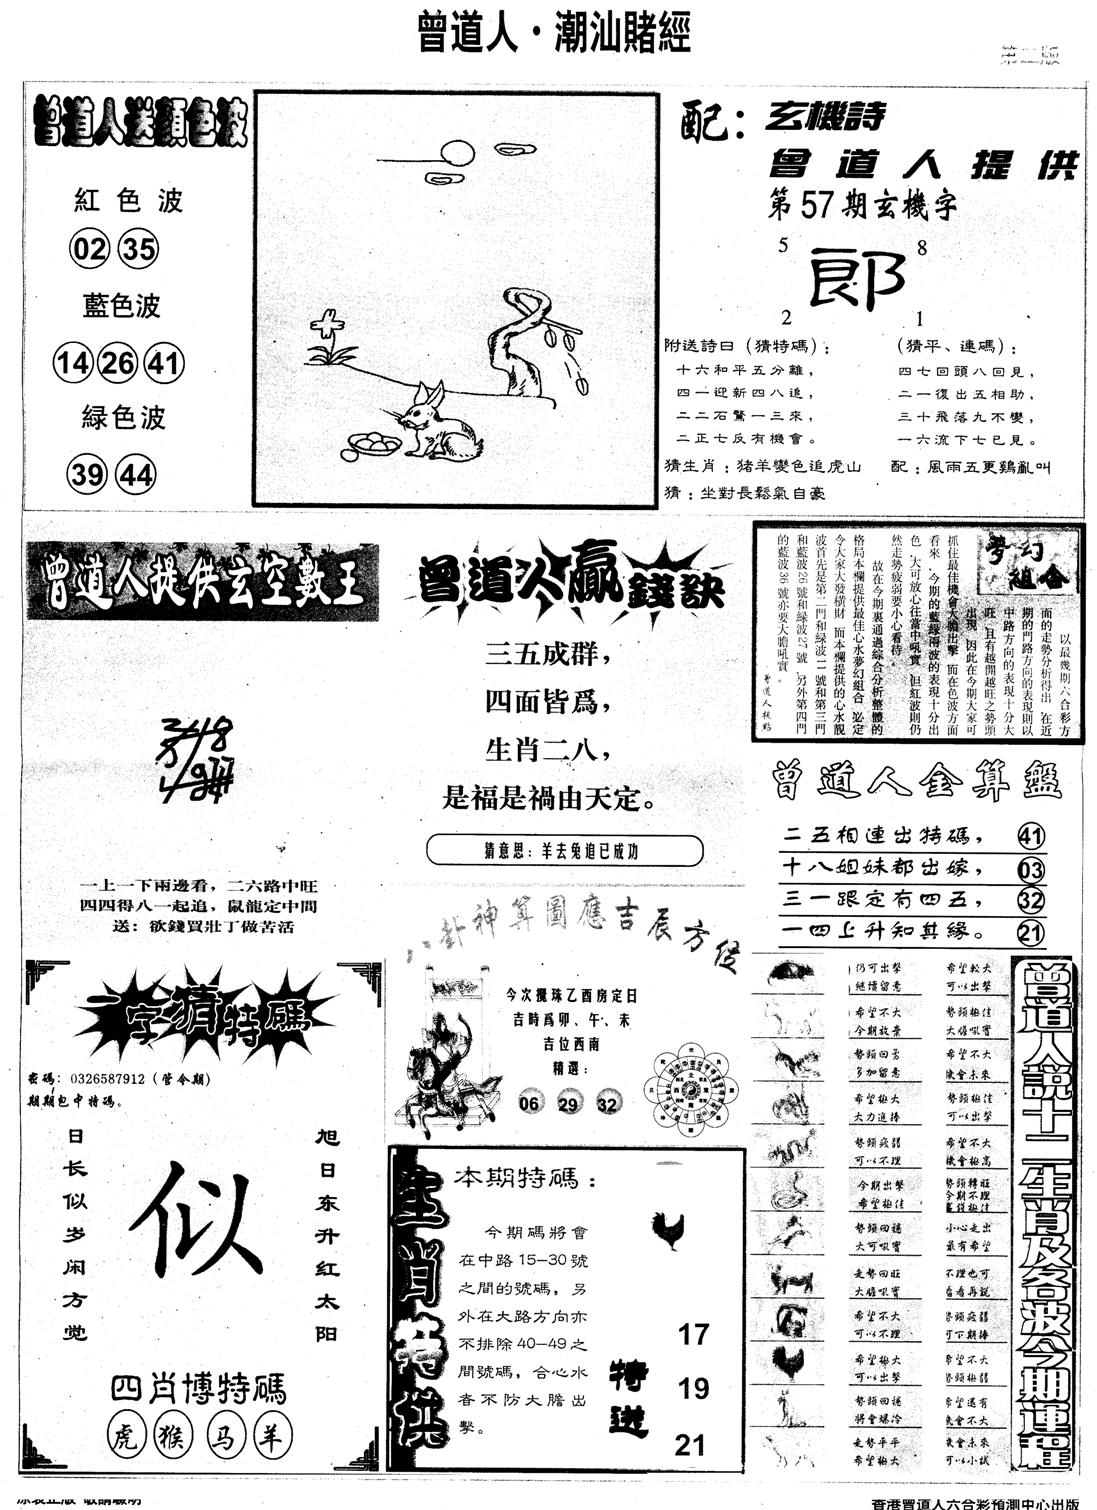 曾道人·潮汕賭經
第二版
曾道人送顏色波
紅色波
02 35
藍色波
14 26 41
緑色波
39 44
配：玄機詩
曾道人提供
第57期玄機字
5 8
郎
2 1
附送詩曰（猜特碼）：
十六和平五分離，
四一迎新四八追，
二二石驚一三來，
二正七反有機會。
（猜平、連碼）：
四七回頭八回見，
二一復出五相助，
三十飛落九不變，
一六流下七已見。
猜生肖：猪羊變色追虎山
配：風雨五更鷄亂叫
猜：坐對長鬆氣自豪
曾道人提供玄空數王
一上一下兩邊看，二六路中旺
四四得八一起追，鼠龍定中間
送：欲錢買壯丁做苦活
曾道人贏錢訣
三五成群，
四面皆爲，
生肖二八，
是福是禍由天定。
猜意思：羊去兔追已成功
夢幻組合
以最幾期六合彩方
面的走勢分析得出，在近
期的門路方向的表現則以
中路方向的表現十分大
旺，且有越開越旺之勢頭
出現，因此在今期大家可
抓住最佳機會大膽出擊，而在色波方面
看來，今期的藍緑兩波的表現十分出
色，大可放心在當中吼實，但紅波則仍
然走勢疲弱要小心看待。
故在今期裏通過綜合分析整體的
格局本欄提供最佳心水夢幻組合，必定
令大家大發横財，而本欄提供的心水靚
波首先是第二門和緑波11號和第三門
和藍波26號和緑波27號，另外第四門
的藍波36號亦要大膽吼實。
曾道人金算盤
二五相連出特碼， 41
十八姐妹都出嫁， 03
三一跟定有四五， 32
一四上升知其緣。 21
八卦神算圖應吉辰方從
今次攪珠乙酉房定日
吉時爲卯、午、未
吉位西南
精選：
06 29 32
一字猜特碼
密碼：0326587912（管令期）
期期包中特碼。
日长似岁闲方觉
似
旭日东升红太阳
四肖博特碼
虎 猴 马 羊
生肖特供
本期特碼：
今期碼將會
在中路15—30號
之間的號碼，另
外在大路方向亦
不排除40—49之
間號碼，合心水
者不防大膽出
擊。
特送
17
19
21
曾道人説十二生肖及各波今期運程
仍可出擊 希望較大
继續留意 可以出擊
希望不大 勢頭極佳
今期放棄 大膽吼實
勢頭回勇 希望不大
多加留意 機會未來
希望極大 勢頭極佳
大力追捧 可以出擊
勢頭疲弱 希望不大
可以不理 機會極高
今期出擊 勢頭轉旺
希望極佳 今期不理
勢頭回穩 小心走出
大可吼實 最有希望
走勢回旺 不理也可
大膽吼實 看看再説
希望不大 勢頭疲弱
可以不理 可下期捧
希望極大 希望不大
可以出擊 勢頭極弱
勢頭回穩 希望還有
將會爆冷 機會不大
走勢平平 機會未來
希望極大 可以小試
香港曾道人六合彩預測中心出版